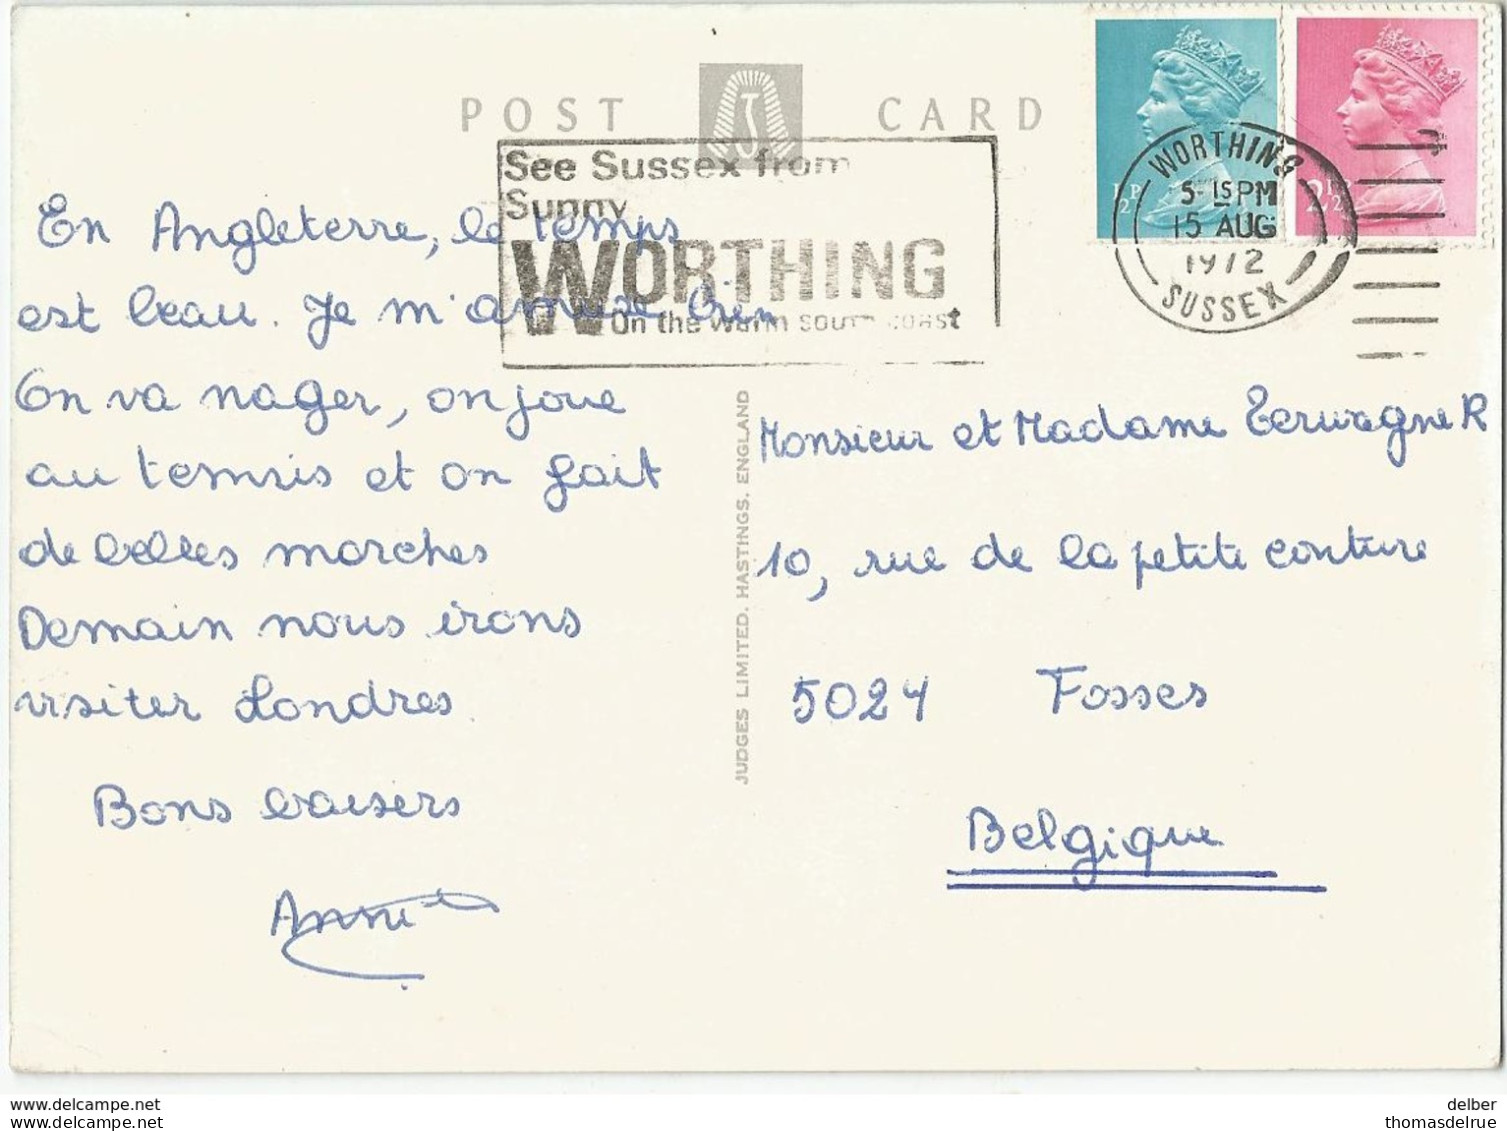 POST CARD
See Sussex from
Sunny
WORTHING
On the warm south coast
WORTHING
5-15PM
15 AUG
1972
SUSSEX
½P
2½P
En Angleterre, le temps
est beau. Je m'amuse bien
On va nager, on joue
au tennis et on fait
de belles marches
Demain nous irons
visiter Londres
Bons baisers
JUDGES LIMITED, HASTINGS, ENGLAND
Monsieur et Madame Terwagne R
10, rue de la petite couture
5024 Fosses
Belgique
www.delcampe.net
www.delcampe.net
delber
thomasdelrue